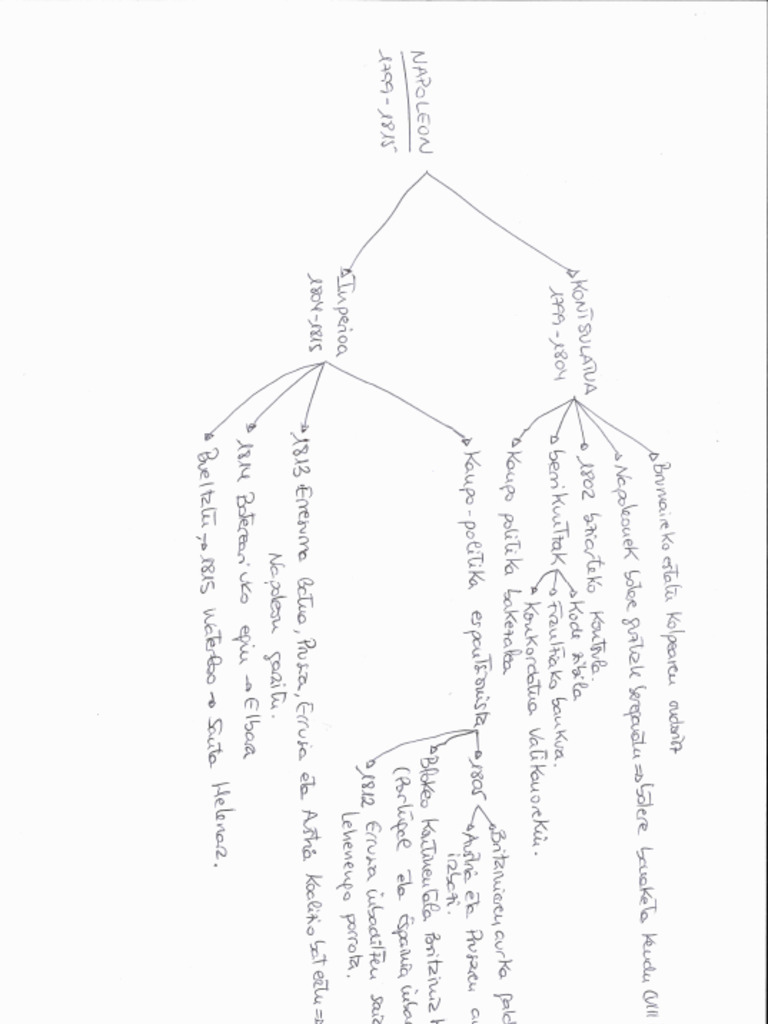 NAPOLEON
1799-1815
KONTSULATUA
1799-1804
Brumaireko estatu kolpearen ondoriz
Napoleonek botere guztiak bereganatu => botere banaketa kendu (VIII
1802 biziarteko kontsula.
berrikuntzak
Kode zibila
Frantziako bankua.
Konkordatua Vatikanorekin.
Kanpo politika baketzalea
Inperioa
1804-1815
Kanpo-politika espantsionista
1805
Britainiaren aurka
Austria eta Prusiaren
irabazi.
Blokeo kontinentala Britainia
(Portugal eta Espainia
1812 Errusia inbaditzen
Lehenengo porrota.
1813 Erresuma Batua, Prusia, Errusia eta Austria koalizio bat eratu =>
Napoleon garaitu.
1814 Boterari uko egin -> Elbara
Bueltatu -> 1815 Waterloo -> Santa Helenaz.